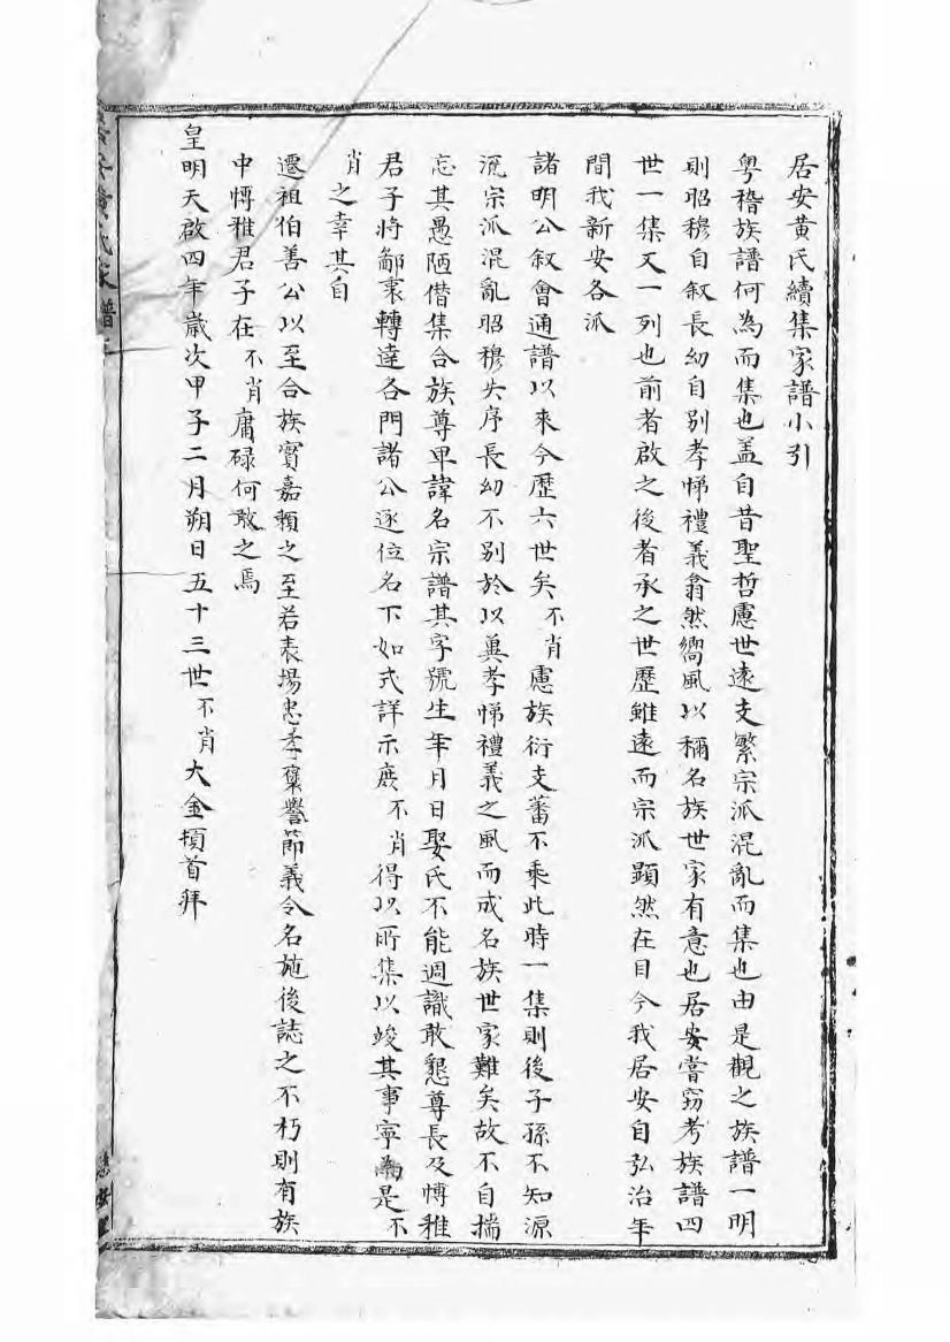 居安黃氏續集家譜小引
粵稽族譜何為而集也盖自昔聖哲慮世遠支繁宗派混亂而集也由是觀之族譜一明
則昭穆自叙長幼自別孝悌禮義翕然嚮風以稱名族世家有意也居安嘗竊考族譜四
世一集又一列也前者啟之後者承之世歷雖遠而宗派顕然在目今我居安自弘治年
間我新安各派
諸明公叙會通譜以來今歷六世矣不肖慮族衍支蕃不乘此時一集則後子孫不知源
流宗派混亂昭穆失序長幼不别於以奠孝悌禮義之風而成名族世家難矣故不自揣
忘其愚陋僣集合族尊卑諱名宗譜其字號生年月日娶氏不能週識敢懇尊長及愽雅
君子將鄙衷轉達各門諸公逐位名下如式詳示庻不肖得以所集以竣其事寧啇是不
肖之幸其自
遷祖伯善公以至合族寳嘉頼之至若表揚忠孝襃譽節義令名施後誌之不朽則有族
中愽雅君子在不肖庸碌何敢之焉
皇明天啟四年歲次甲子二月朔日五十三世不肖大金頓首拜
居安黃氏家譜